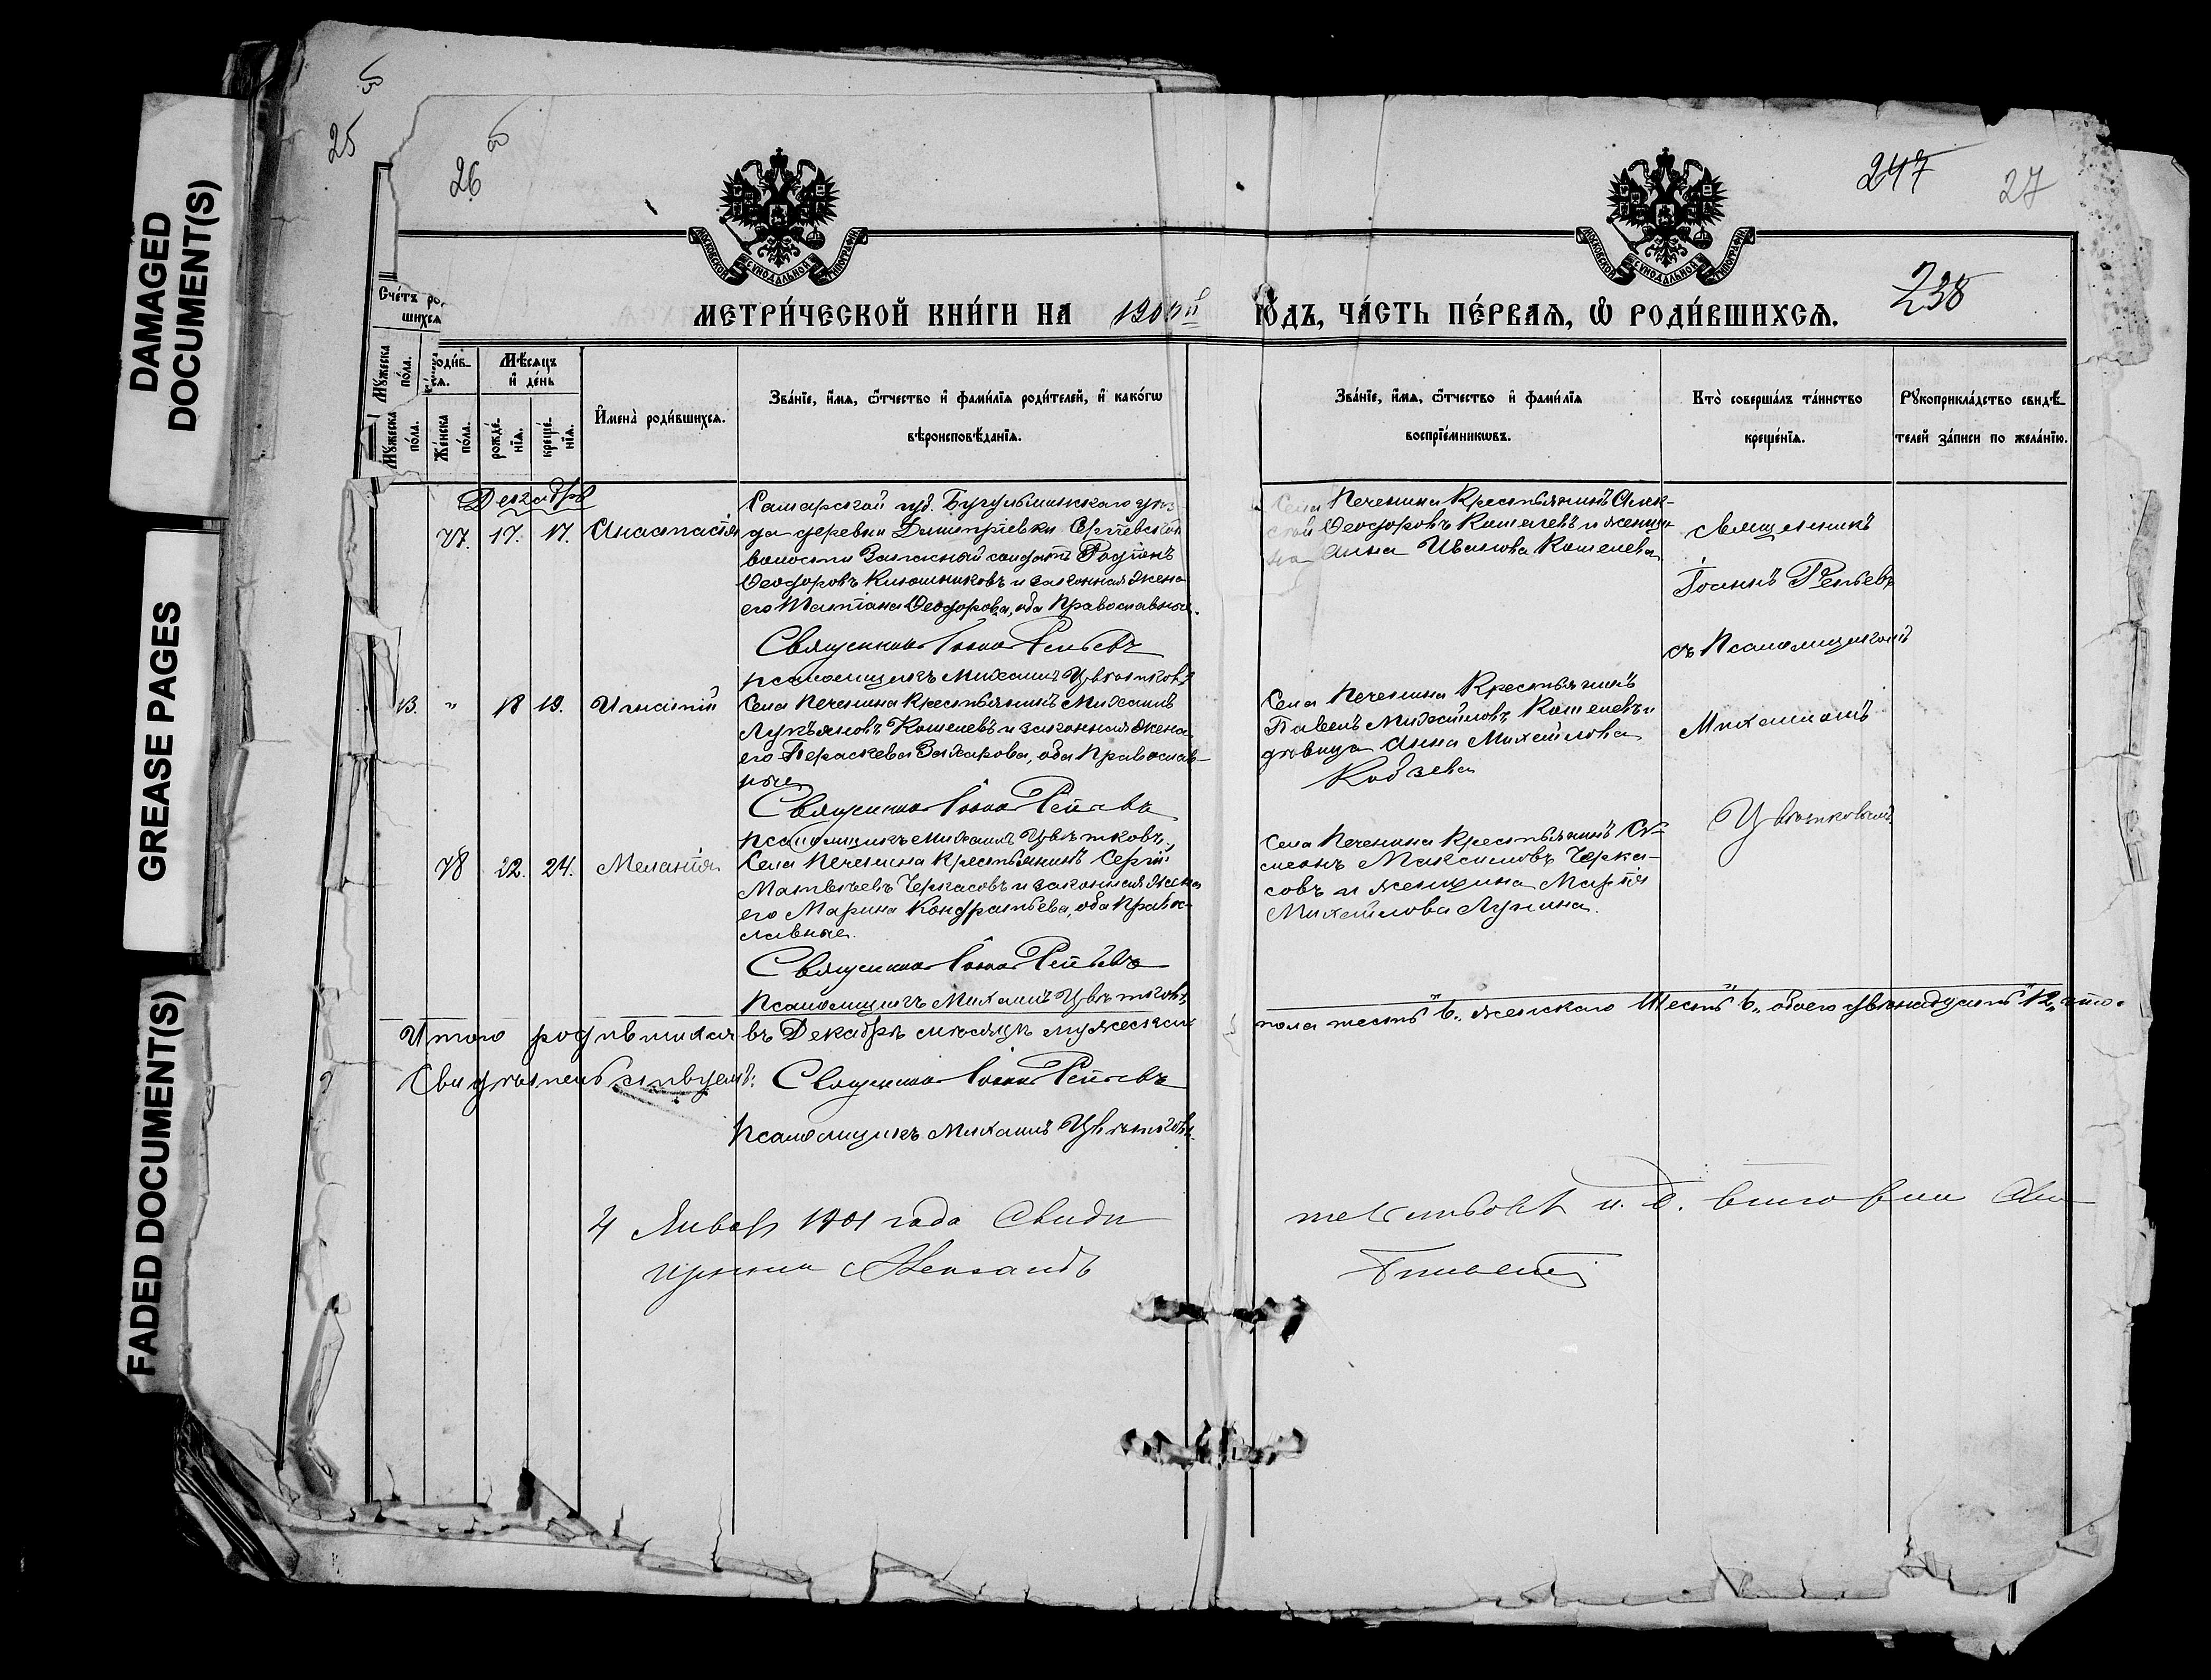 DAMAGED
DOCUMENT(S)
GREASE PAGES
FADED DOCUMENT(S)
25
26
247
27
238
МОСКОВСКОЙ СѴНОДАЛЬНОЙ ТИПОГРАФІИ
МОСКОВСКОЙ СѴНОДАЛЬНОЙ ТИПОГРАФІИ
МЕТРИ́ЧЕСКОЙ КНИ́ГИ НА 1900й
ГО́ДЪ, ЧА́СТЬ ПЕ́РВАЯ, Ѡ РОДИ́ВШИХСЯ.
Сче́тъ ро
шихся
Мꙋ́жеска по́ла.
оди́в-
ся.
Мꙋ́жеска по́ла.
Же́нска по́ла.
Мѣ́сяцъ и де́нь
рожде́нїя.
креще́нїя.
Имена̀ роди́вшихся.
Зва́нїе, и́мя, ѻ҆́тчество и фами́лїя роди́телей, и како́гѡ
вѣроисповѣ́данїя.
Зва́нїе, и́мя, ѻ҆́тчество и фами́лїя
воспрїе́мникѡвъ.
Кто̀ соверша́лъ та́инство
креще́нїя.
Рꙋкоприкла́дство свидѣ́-
телей за́писи по жела́нїю.
Декабрь
27. 17. 17. Анастасія
Самарской губ. Бугульминскаго уѣз-
да деревни Димитріевки Сергіевской
волости Запасный солдатъ Родіонъ
Ѳеодоровъ Клюшниковъ и законная жена
его Татіана Ѳеодорова, оба православные.
Священникъ Іоаннъ Репьевъ
псаломщикъ Михаилъ Цвѣтковъ
Села Печенина крестьянинъ Алек-
сѣй Ѳеодоровъ Кошелевъ и женщи-
на Анна Иванова Кошелева
священникъ
Іоаннъ Репьевъ
съ псаломщикомъ
Михаиломъ
Цвѣтковымъ
13. " 18 19. Игнатій
Села Печенина крестьянинъ Михаилъ
Лукьяновъ Кошелевъ и законная жена
его Параскева Захарова, оба православ-
ные
Священникъ Іоаннъ Репьевъ
псаломщикъ Михаилъ Цвѣтковъ
Села Печенина Крестьянинъ
Павелъ Михайловъ Кошелевъ и
дѣвица Анна Михайлова
Кобзева
28 22. 24. Меланія
Села Печенина крестьянинъ Сергій
Матвѣевъ Черкасовъ и законная жена
его Марина Кондратьева, оба право-
славные.
Священникъ Іоаннъ Репьевъ
Псаломщикъ Михаилъ Цвѣтковъ
Села Печенина крестьянинъ Си-
меонъ Максимовъ Черка-
совъ и женщина Марія
Михайлова Лунина.
Итого родившихся въ Декабрѣ мѣсяцѣ мужескаго
пола шесть 6, женскаго шесть 6, обоего двѣнадцать 12,
Свидѣтельствуемъ: Священникъ Іоаннъ Репьевъ
Псаломщикъ Михаилъ Цвѣтковъ.
4 Январ 1901 года Свиди
тельствовалъ и. д.